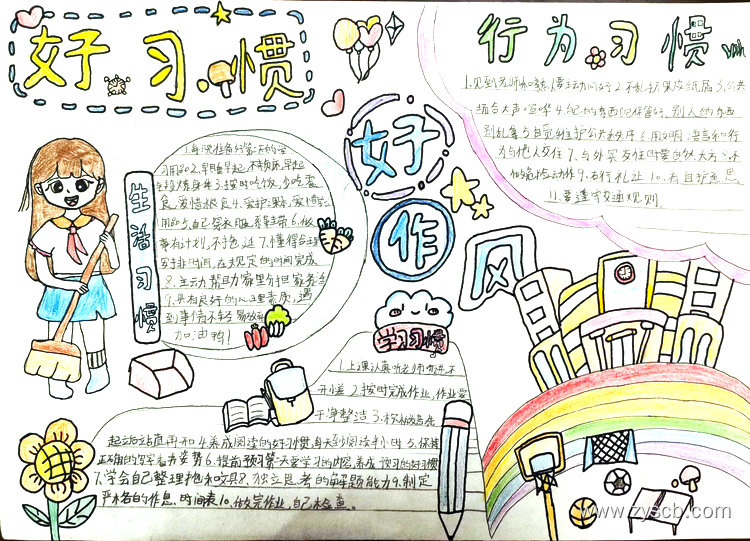 好习惯
行为习惯
1.见到老师和客人要主动问好2.不乱扔果皮纸屑3.公共
场合不大声喧哗4.自己的东西自己保管好,别人的东西
别乱拿5.自觉维护公共秩序6.用文明语言和行
为与他人交往7.与外宾交往时要自然大方
9.右行礼让10.有自护意思
11.要遵守交通规则。
好
作
风
生活习惯
习用品2.早睡早起,不
身体3.按时吃饭,少吃零
食,爱惜粮食4.爱护
用品5.自己穿衣服,系鞋带6.做
事有计划,不拖延7.懂得合理
安排时间,在规定的时间完成
8.主动帮助家里分担家务活
9.具有良好的心理素质,遇
到事情不轻易放弃
加油鸭!
学习习惯
1.上课认真听老师讲课不
开小差2.按时完成作业,作业要
干净整洁3.
起立后站直再
4.养成阅读的好习惯,每天至少阅读半小时5.保持
正确的写字看书姿势6.提前预习第二天要学习的内容,养成预习的好习惯
7.学会自己整理书包和文具8.独立思考的解题能力9.制定
严格的作息时间表10.做完作业,自己检查。
www.zyscb.com